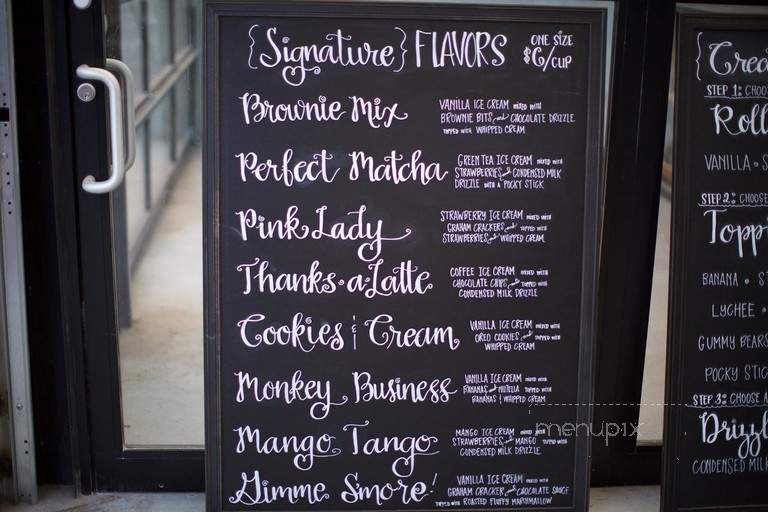 {Signature} FLAVORS
ONE SIZE
$6/CUP
Brownie Mix
VANILLA ICE CREAM MIXED WITH
BROWNIE BITS and CHOCOLATE DRIZZLE
TOPPED WITH WHIPPED CREAM
Perfect Matcha
GREEN TEA ICE CREAM MIXED WITH
STRAWBERRIES and CONDENSED MILK
DRIZZLE WITH A POCKY STICK
Pink Lady
STRAWBERRY ICE CREAM MIXED WITH
GRAHAM CRACKERS and TOPPED WITH
STRAWBERRIES and WHIPPED CREAM
Thanks-a-Latte
COFFEE ICE CREAM MIXED WITH
CHOCOLATE CHIPS, and TOPPED WITH
CONDENSED MILK DRIZZLE
Cookies & Cream
VANILLA ICE CREAM MIXED WITH
OREO COOKIES and TOPPED WITH
WHIPPED CREAM
Monkey Business
VANILLA ICE CREAM MIXED WITH
BANANAS and NUTELLA TOPPED WITH
BANANAS & WHIPPED CREAM
Mango Tango
MANGO ICE CREAM MIXED WITH
STRAWBERRIES and MANGO TOPPED WITH
CONDENSED MILK DRIZZLE
Gimme S'more!
VANILLA ICE CREAM MIXED WITH
GRAHAM CRACKER and CHOCOLATE SAUCE
TOPPED WITH ROASTED FLUFFY MARSHMALLOW
{Crea
STEP 1: CHOO
Roll
VANILLA • S
STEP 2: CHOOSE
Toppi
BANANA • ST
LYCHEE •
GUMMY BEARS
POCKY STIC
STEP 3: CHOOSE A
Drizzl
CONDENSED MILK
menupix